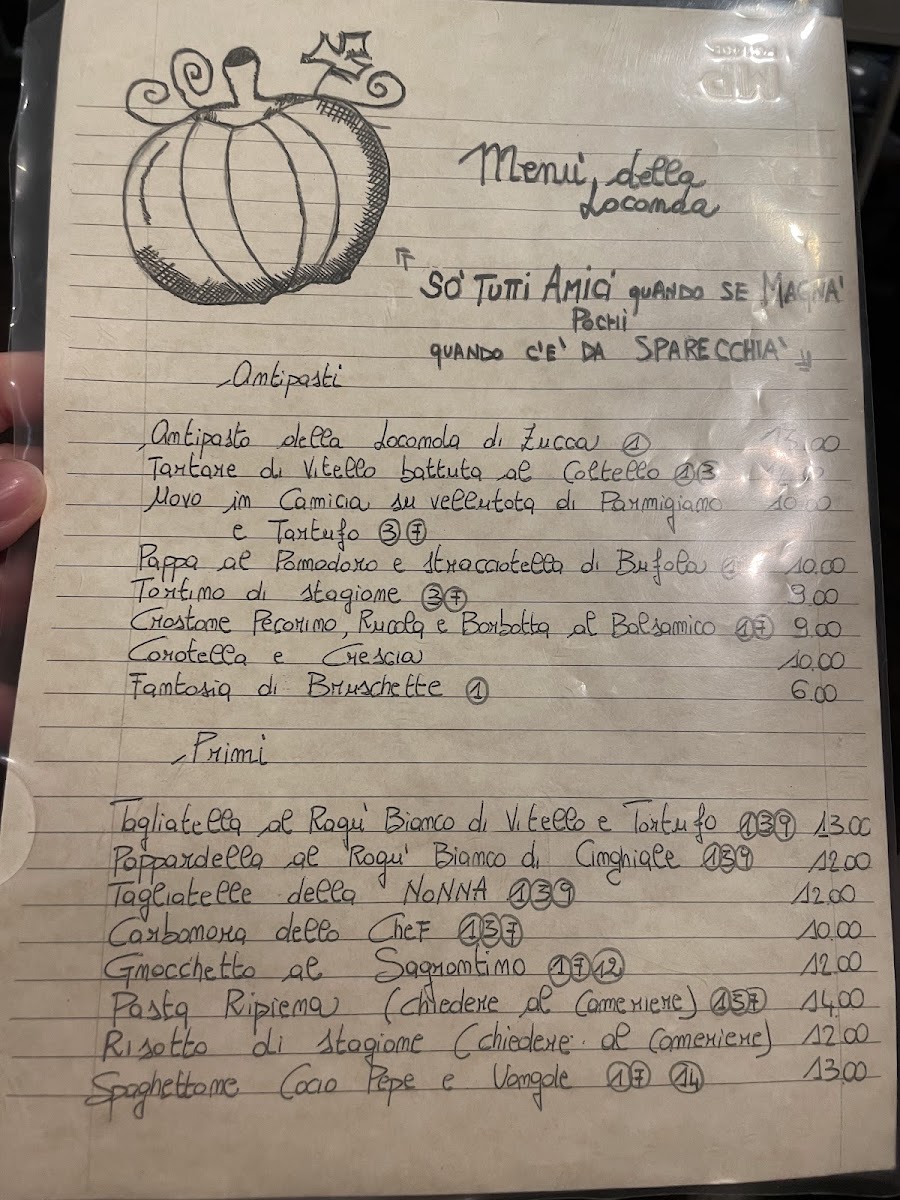 Menù della
Locanda
SO' TUTTI AMICI QUANDO SE MAGNA'
POCHI
QUANDO C'E' DA SPARECCHIA'
Antipasti
Antipasto della Locanda di Zucca 1 13,00
Tartare di Vitello battuta al Coltello 1 3
Uovo in Camicia su vellutata di Parmigiano 10.00
e Tartufo 3 7
Pappa al Pomodoro e stracciatella di Bufala 10.00
Tortino di stagione 3 7 9.00
Crostone Pecorino, Rucola e Barbotta al Balsamico 1 7 9.00
Coratella e Crescia 10.00
Fantasia di Bruschette 1 6.00
Primi
Tagliatella al Ragù Bianco di Vitello e Tartufo 1 3 9 13.00
Pappardella al Ragù Bianco di Cinghiale 1 3 9 12.00
Tagliatelle della NONNA 1 3 9 12.00
Carbonara dello CheF 1 3 7 10.00
Gnocchetto al Sagrantino 1 7 12 12.00
Pasta Ripiena (chiedere al Cameriere) 1 3 7 14,00
Risotto di stagione (chiedere al Cameriere) 12.00
Spaghettone Cacio Pepe e Vongole 1 7 14 13.00